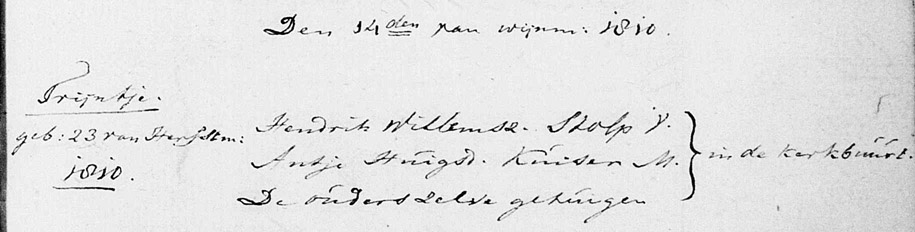 Den 14den van wijnm: 1810.
Trijntje.
geb: 23 van Herfstm:
1810.
Hendrik Willemsz. Stolp V.
Antje Huigsd. Kuiser M.
De ouders zelve getuigen
in de kerkbuurt.